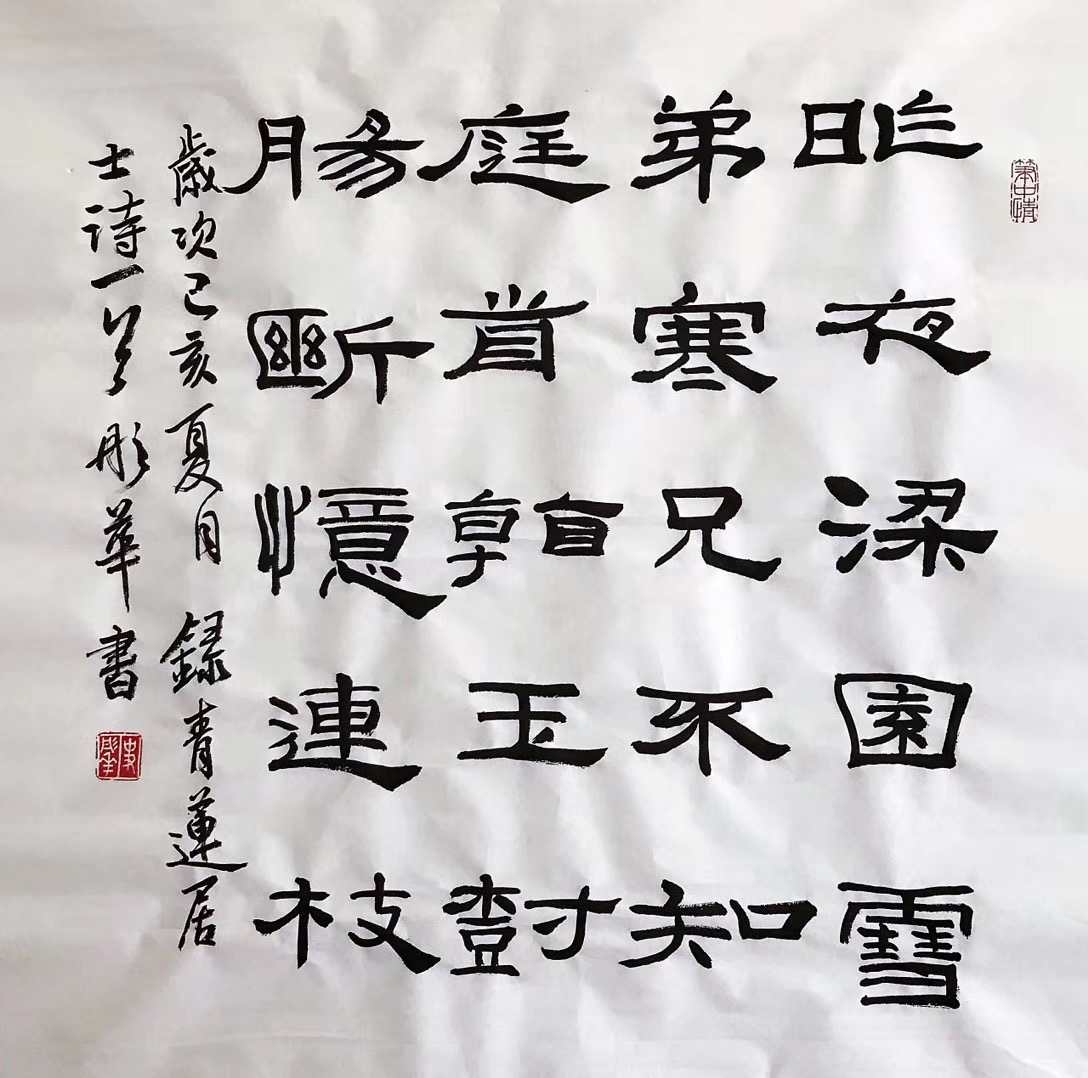 筆中情
昨夜梁園雪
弟寒兄不知
庭前看玉樹
腸斷憶連枝
歲次己亥夏月錄青蓮居
士詩一首彤華書